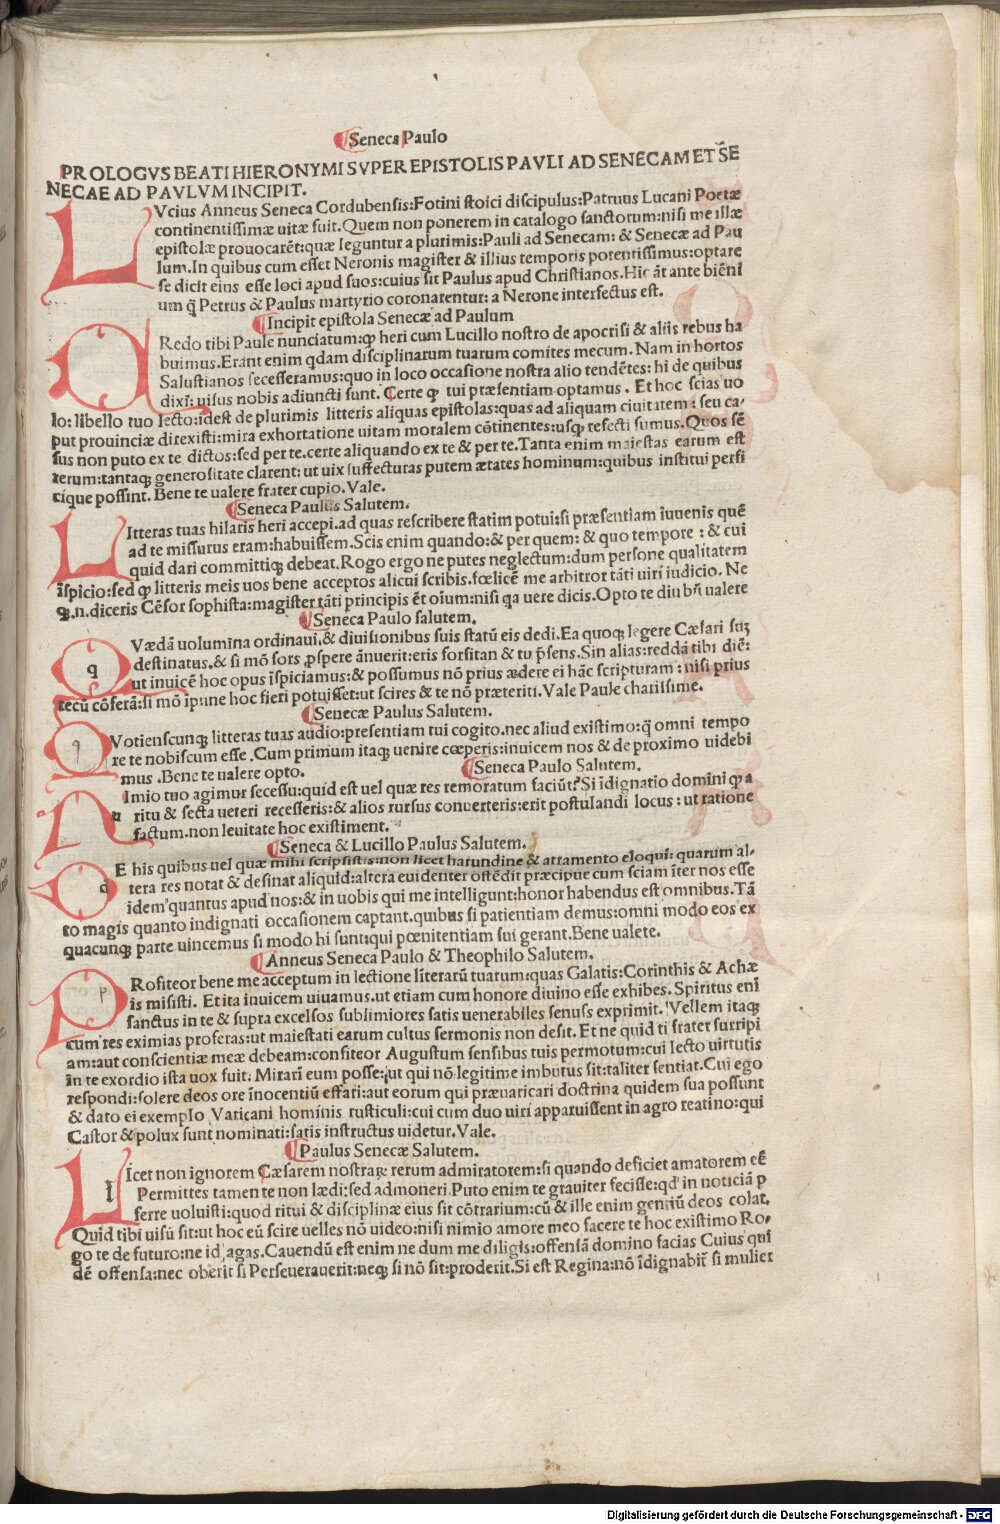 Seneca Paulo
PROLOGVS BEATI HIERONYMI SVPER EPISTOLIS PAVLI AD SENECAM ET SE
NECAE AD PAVLVM INCIPIT.
LVcius Anneus Seneca Cordubensis:Fotini stoici discipulus:Patruus Lucani Poetæ
continentissimæ uitæ fuit.Quem non ponerem in catalogo sanctorum:nisi me illæ
epistolæ prouocarēt:quæ leguntur a plurimis:Pauli ad Senecam: & Senecæ ad Pau
lum.In quibus cum esset Neronis magister & illius temporis potentissimus:optare
se dicit eius esse loci apud suos:cuius sit Paulus apud Christianos.Hic āt ante biēni
um q̄ Petrus & Paulus martyrio coronarentur: a Nerone interfectus est.
Incipit epistola Senecæ ad Paulum
Redo tibi Paule nunciatum:qꝫ heri cum Lucillo nostro de apocrisi & aliis rebus ha
buimus.Erant enim qdam disciplinarum tuarum comites mecum. Nam in hortos
Salustianos secesseramus:quo in loco occasione nostra alio tendētes: hi de quibus
dixi: uisus nobis adiuncti sunt. Certe qꝫ tui præsentiam optamus . Et hoc scias uo
lo: libello tuo lecto:idest de plurimis litteris aliquas epistolas:quas ad aliquam ciuitatem : seu ca-
put prouinciæ direxisti:mira exhortatione uitam moralem cōtinentes:usqꝫ refecti sumus.Quos sē
sus non puto ex te dictos:sed per te.certe aliquando ex te & per te.Tanta enim maiestas earum est
rerum:tantaqꝫ generositate clarent: ut uix suffecturas putem ætates hominum:quibus institui perfi
cique possint. Bene te ualere frater cupio.Vale.
Seneca Paulus Salutem.
LItteras tuas hilaris heri accepi.ad quas rescribere statim potui:si præsentiam iuuenis quē
ad te missurus eram:habuissem.Scis enim quando:& per quem: & quo tempore : & cui
quid dari committiqꝫ debeat. Rogo ergo ne putes neglectum:dum persone qualitatem
īspicio:sed qꝫ litteris meis uos bene acceptos alicui scribis.fœlicē me arbitror tāti uiri iudicio. Ne
qꝫ.n.diceris Cēsor sophista:magister tāti principis ēt oīum:nisi qa uere dicis.Opto te diu bn̄ ualere
Seneca Paulo salutem.
q Vædā uolumina ordinaui,& diuisionibus suis statū eis dedi.Ea quoqꝫ legere Cæsari suꝫ
destinatus.& si mō sors ꝓspere ānuerit:eris forsitan & tu p̄sens.Sin alias:reddā tibi diē:
ut inuicē hoc opus īspiciamus:& possumus nō prius ædere ei hāc scripturam : nisi prius
tecū cōferā:si mō īpune hoc fieri potuisset:ut scires & te nō præteriri. Vale Paule charissime.
Senecæ Paulus Salutem.
q Votienscunqꝫ litteras tuas audio:presentiam tui cogito.nec aliud existimo:q̄ omni tempo
re te nobiscum esse . Cum primum itaqꝫ uenire cœperis:inuicem nos & de proximo uidebi
mus .Bene te ualere opto.
Seneca Paulo Salutem.
n Imio tuo agimur secessu:quid est uel quæ res remoratum faciūt?Si īdignatio domini qꝫ a
ritu & secta ueteri recesseris:& alios rursus conuerteris:erit postulandi locus : ut ratione
factum.non leuitate hoc existiment.
Seneca & Lucillo Paulus Salutem.
d E his quibus uel quæ mihi scripsistis:non licet harundine & atramento eloqui: quarum al-
tera res notat & desinat aliquid:altera euidenter ostēdit præcipue cum sciam īter nos esse
idem quantus apud nos:& in uobis qui me intelligunt:honor habendus est omnibus.Tā
to magis quanto indignati occasionem captant.quibus si patientiam demus:omni modo eos ex
quacunqꝫ parte uincemus si modo hi sunt:qui pœnitentiam sui gerant.Bene ualete.
Anneus Seneca Paulo & Theophilo Salutem.
p Rofiteor bene me acceptum in lectione literarū tuarum:quas Galatis:Corinthis & Achæ
is misisti. Et ita inuicem uiuamus.ut etiam cum honore diuino esse exhibes. Spiritus eni
sanctus in te & supra excelsos sublimiores satis uenerabiles senuss exprimit. Vellem itaqꝫ
cum res eximias proferas:ut maiestati earum cultus sermonis non desit. Et ne quid ti frater surripi
am:aut conscientiæ meæ debeam:confiteor Augustum sensibus tuis permotum:cui lecto uirtutis
in te exordio ista uox fuit. Mirari eum posse:ut qui nō legitime imbutus sit:taliter sentiat.Cui ego
respondi:solere deos ore īnocentiū effari:aut eorum qui præuaricari doctrina quidem sua possunt
& dato ei exemplo Vaticani hominis rusticuli:cui cum duo uiri apparuissent in agro reatino:qui
Castor & polux sunt nominati:satis instructus uidetur.Vale.
Paulus Senecæ Salutem.
l Icet non ignorem Cæsarem nostraꝝ rerum admiratorem:si quando deficiet amatorem eē
Permittes tamen te non lædi:sed admoneri.Puto enim te grauiter fecisse:qd' in noticiā p
ferre uoluisti:quod ritui & disciplinæ eius sit cōtrarium:cū & ille enim gentiū deos colat.
Quid tibi uisū sit:ut hoc eū scire uelles nō uideo:nisi nimio amore meo facere te hoc existimo Ro-
go te de futuro:ne id agas.Cauendū est enim ne dum me diligis:offensā domino facias Cuius qui
dē offensa:nec oberit si Perseuerauerit:neqꝫ si nō sit:proderit.Si est Regina:nō īdignabit̄ si mulier
Digitalisierung gefördert durch die Deutsche Forschungsgemeinschaft - DFG